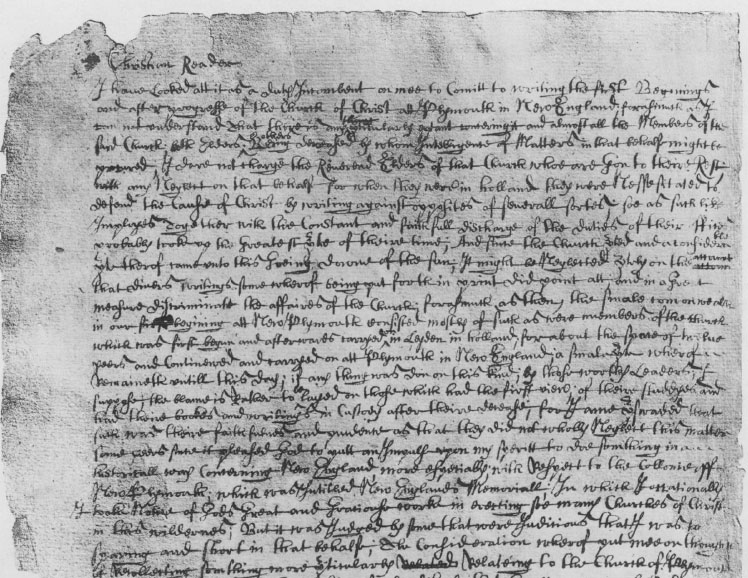 Christian Reader
I have looked att it as a duty Incombent on mee to Comitt to writing the first Begining
and after progresse of the Church of Christ att Plymouth in New England; forasmuch as I
Can not understand that there is any particularly extant concerning it and almost all the Members of the
said Church both Elders & others being deceased by whom Intelligence of Matters in that behalf might be
procured; I dare not charge the Reverend Elders of that Church whoe are gon to theire Rest
with any Neglect on that behalf for when they were in holland they were Nessesitated to
defend the Cause of Christ by writing against opposites of severall sortes soe as such like
Imployes Together with the Constant and faithfull discharge of the duties of their offices
probably took up the Greatest pte of theire time; And since the Church and a considerable
pte therof came unto this Going downe of the sun; It might be Neglected ptely on the account
that divers writings some wherof being put forth in print did point att and in a Great
measure discriminate the affaires of the Church; forasmuch as then, the smale comonwealth
in our first begining att New Plymouth consisted mostly of such as were members of the Church
which was first begun and afterwards carryed on in Leyden in holland for about the space of twelve
yeers and Continewed and carryed on att Plymouth in New England; a smale pte wherof
Remaineth untill this day; if any thing was don on this kind; by those worthy Leaders; I
suppose the blame is Rather to be layed on those which had the first view; of theire studdyes and
had theire bookes and writings in Custody after theire decease; for I ame pswaded that
such was theire faithfulnes and prudence as that they did not wholly Neglect this matter
some yeers since it pleased God to putt an Impulse upon my speritt to doe somthing in a
historicall way Concerning New England more especially with Respect to the Collonie of
New Plymouth; which was Intitled New Englands Memoriall; In which I occationally
tooke Notice of Gods Great and Gratious worke in erecting soe many Churches of Christ
in this wildernes; But it was Judged by some that were Juditious that I was to
sparing and short in that behalfe; The Consideration wherof put mee on thoughts
of Recollecting somthing more pticularly Relateing to the Church of Plymouth